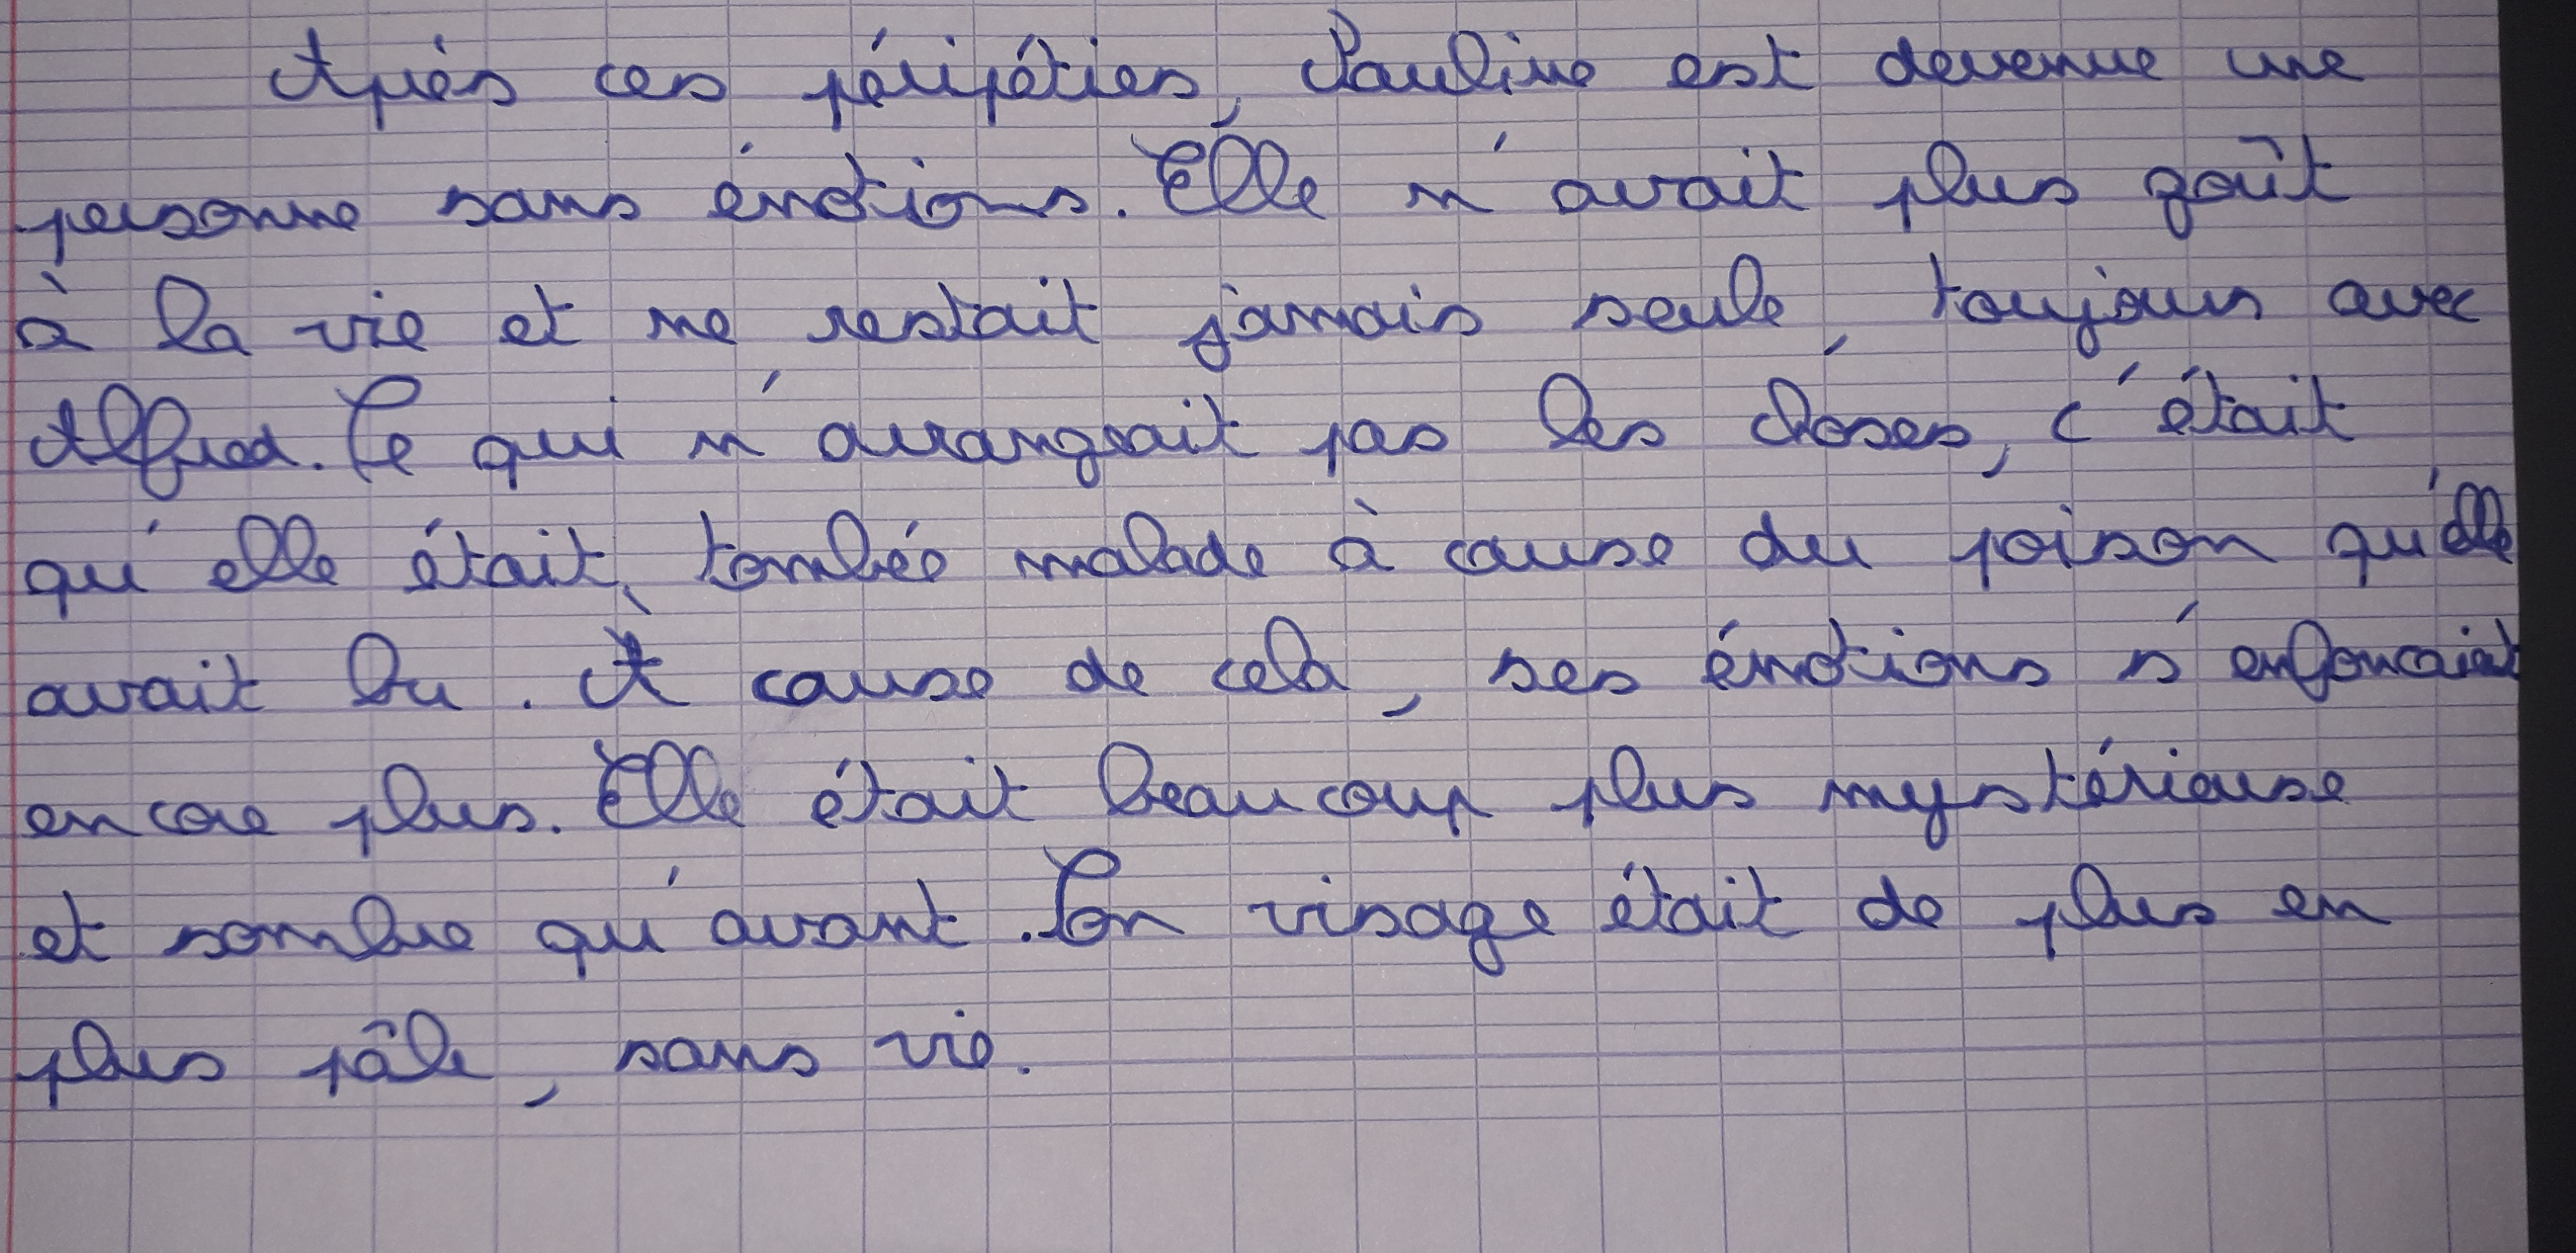 Après ces péripéties, Pauline est devenue une
personne sans émotions. Elle n'avait plus goût
à la vie et ne restait jamais seule, toujours avec
Alfred. Ce qui n'arrangeait pas les choses, c'était
qu'elle était tombée malade à cause du poison qu'elle
avait bu. À cause de cela, ses émotions s'enfoncaient
encore plus. Elle était beaucoup plus mystérieuse
et sombre qu'avant. Son visage était de plus en
plus pâle, sans vie.